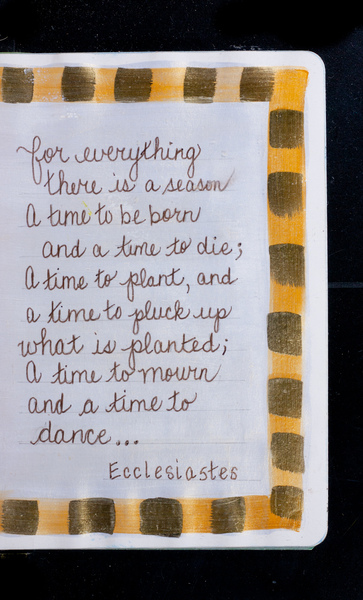 for everything
there is a season
A time to be born
and a time to die;
A time to plant, and
a time to pluck up
what is planted;
A time to mourn
and a time to
dance...
Ecclesiastes